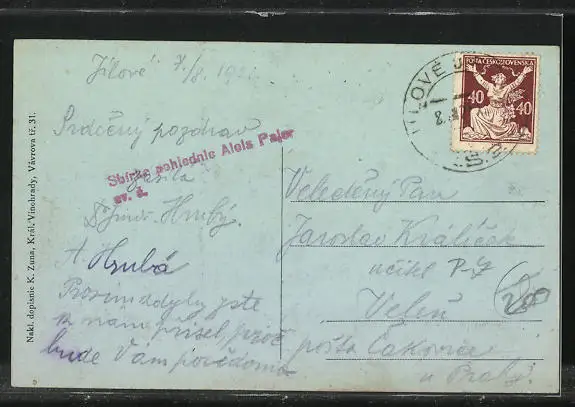 Jílové 7/8 1921
Srdečný pozdrav
Sbírka pohlednic Alois Pajer
sv. č.
zasílá
Hrubý.
A. Hrubá
Prosím
k nám přišel, proč
bude Vám povědomo
Nakl. dopisnic K. Zuna, Král. Vinohrady, Vávrova tř. 31.
POŠTA ČESKOSLOVENSKÁ
40 40
JÍLOVÉ U
8.
Velectěný Pan
Jaroslav Králíček
učitel
Veleň
pošta Čakovice
u Prahy.
200